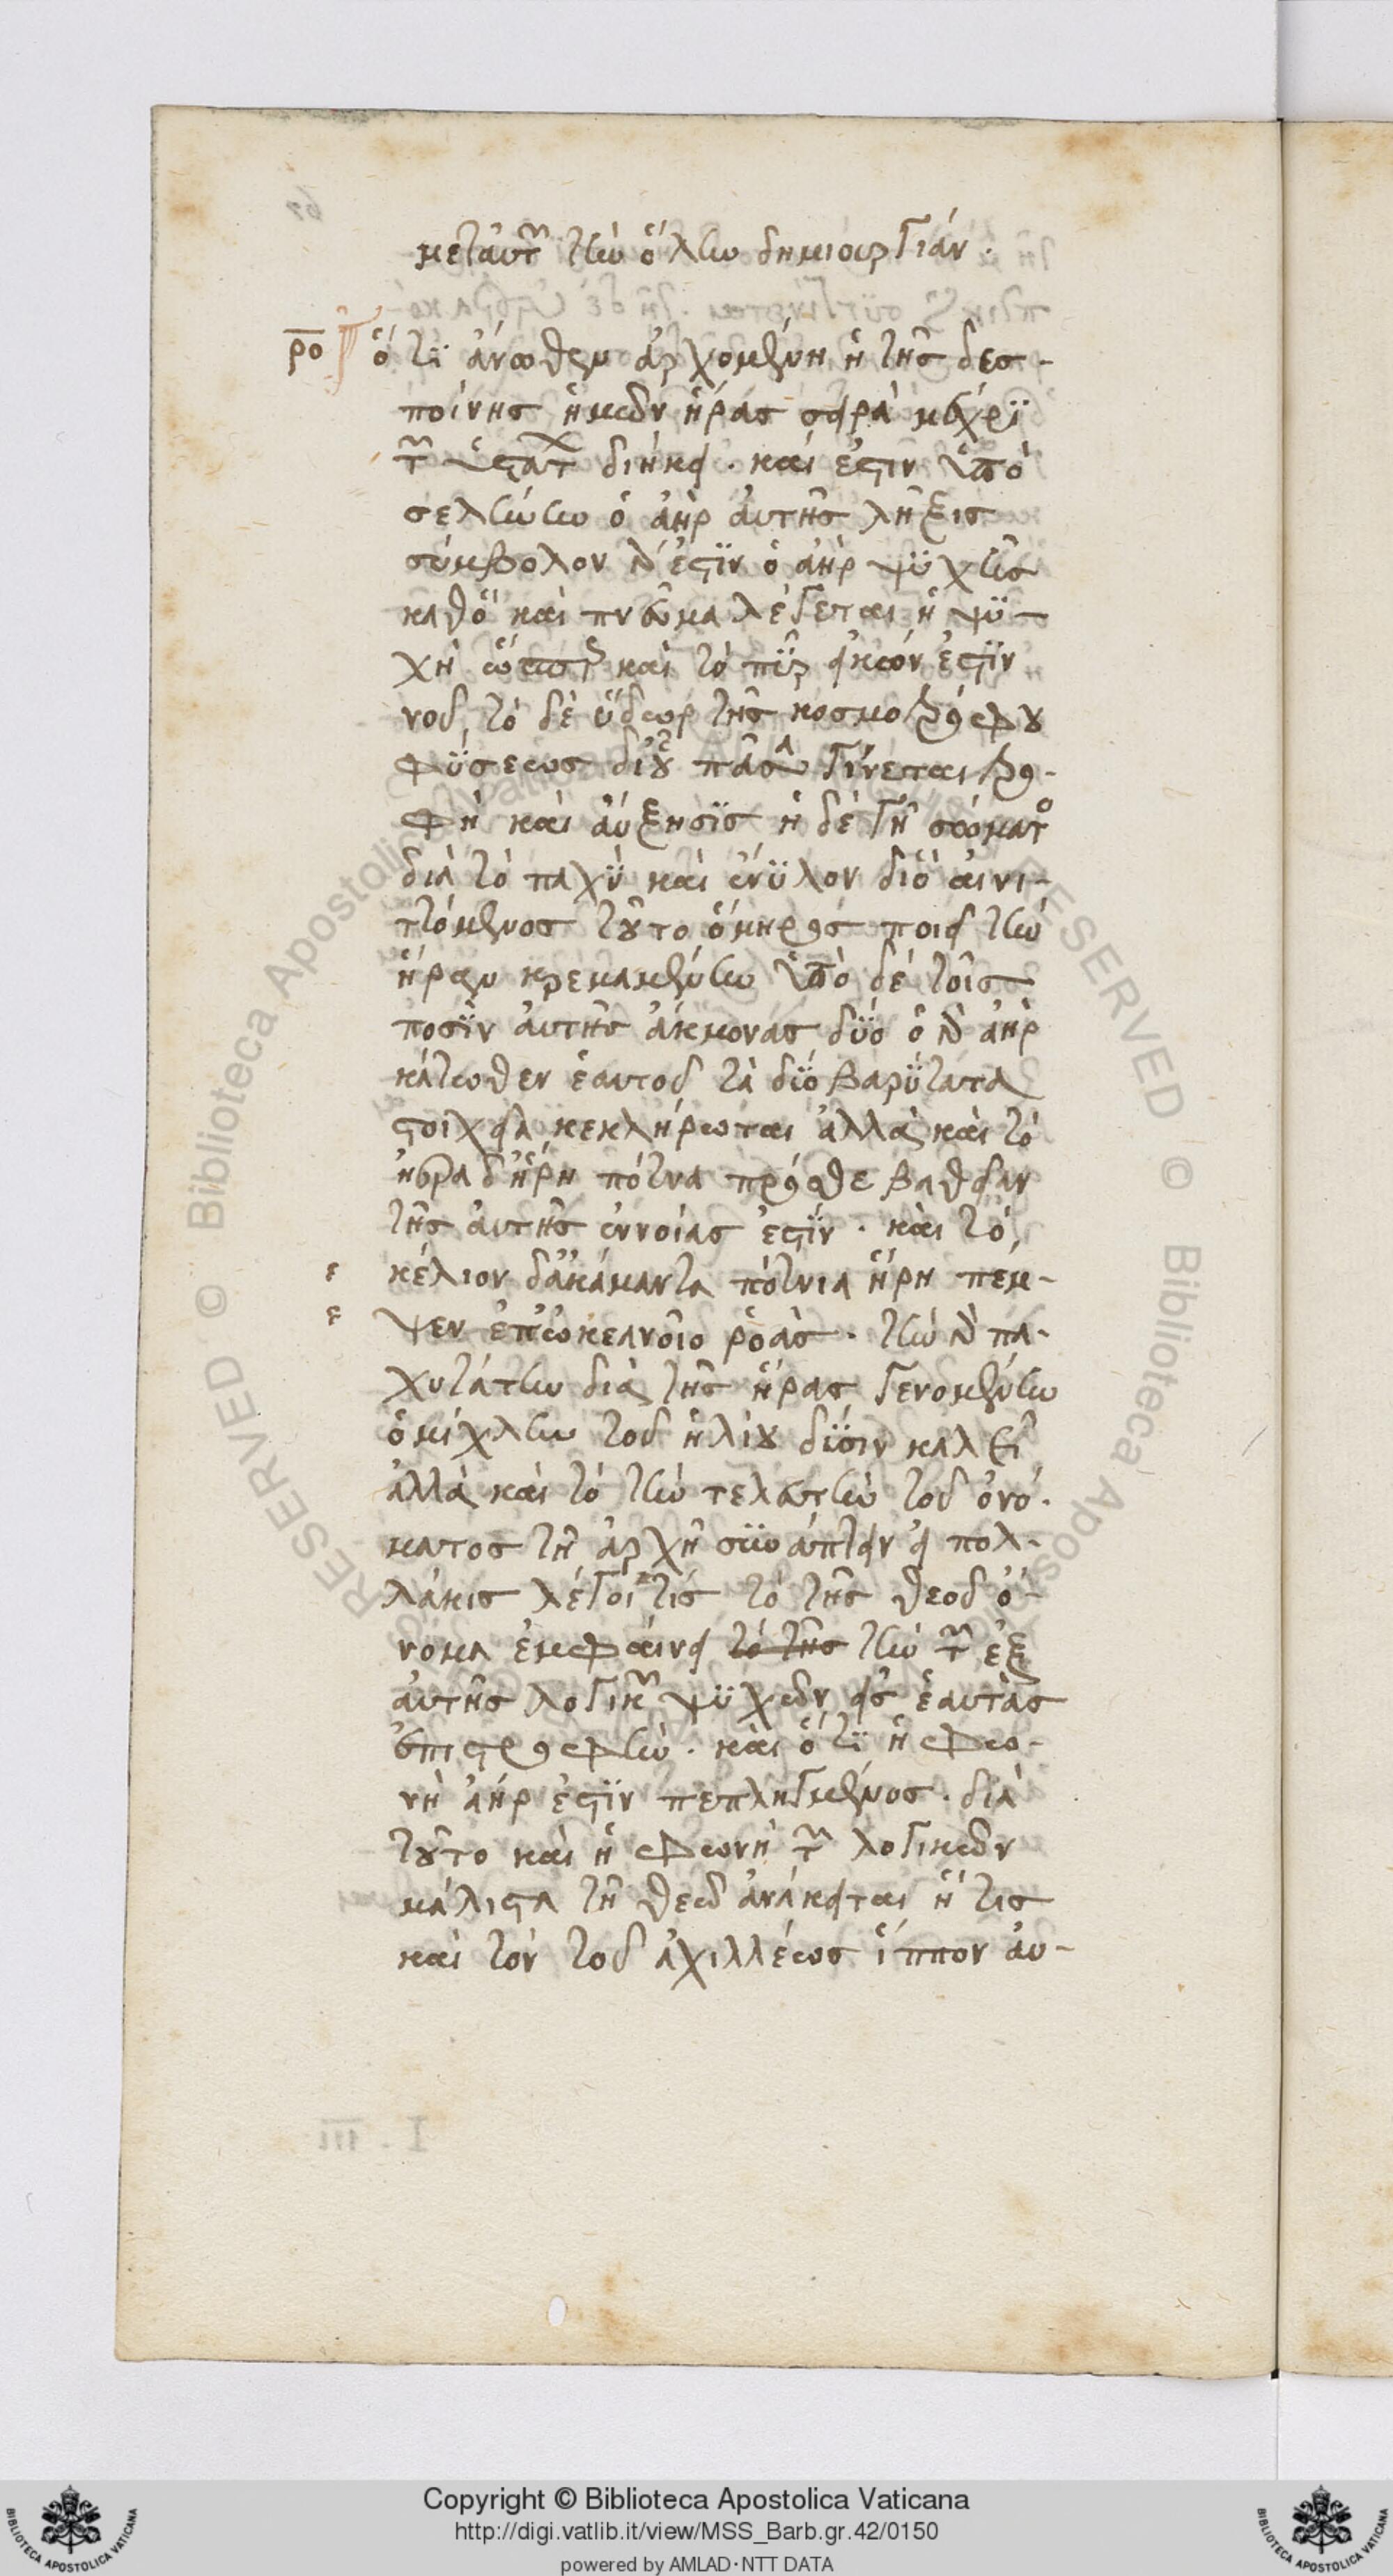 μετ' αὐτῶν τὴν ὅλην δημιουργίαν.
ρο ὅτι ἄνωθεν ἀρχομένη ἡ τῆς δεσ-
ποίνης ἡμῶν ἥρας σειρὰ μέχρι
τῶν ἐσχάτων διήκει. καὶ ἔστιν ὑπὸ
σελήνην ὁ ἀὴρ αὐτῆς λῆξις
σύμβολον γάρ ἐστιν ὁ ἀὴρ ψυχῆς
καθὸ καὶ πνεῦμα λέγεται ἡ ψυ-
χὴ ὥσπερ καὶ τὸ πῦρ εἰκών ἐστιν
νοῦ, τὸ δὲ ὕδωρ τῆς κοσμοτρόφου
φύσεως δι' οὗ πᾶσα γίνεται τρο-
φὴ καὶ αὔξησις ἡ δὲ γῆ σώματος
διὰ τὸ παχὺ καὶ ἔνυλον διὸ αἰνι-
ττόμενος τοῦτο ὅμηρος ποιεῖ τὴν
ἥραν κρεμαμένην ὑπὸ δὲ τοῖς
ποσὶν αὐτῆς ἄκμονας δύο ὁ γὰρ ἀὴρ
κάτωθεν ἑαυτοῦ τὰ δύο βαρύτατα
στοιχεῖα κεκλήρωται ἀλλὰ καὶ τὸ
ἠέρα δ' ἥρη πότνα πρόσθε βαθεῖαν
τῆς αὐτῆς ἐννοίας ἐστίν. καὶ τὸ,
κέλιον δ' ἀκάμαντα πότνια ἥρη πέμ-
ψεν ἐπ' ὠκεανοῖο ῥοάς. τὴν γὰρ πα-
χυτάτην διὰ τῆς ἥρας γενομένην
ὁμίχλην τοῦ ἡλίου δύσιν καλεῖ
ἀλλὰ καὶ τὸ τὴν τελευτὴν τοῦ ὀνό-
ματος τῇ ἀρχῇ συνάπτειν εἰ πολ-
λάκις λέγοι τις τὸ τῆς θεοῦ ὄ-
νομα ἐμφαίνει τὸ τῆς τὴν τῶν ἐξ
αὐτῆς λογικῶν ψυχῶν εἰς ἑαυτὰς
ἐπιστροφήν. καὶ ὅτι ἡ φω-
νὴ ἀήρ ἐστιν πεπληγμένος. διὰ
τοῦτο καὶ ἡ φωνὴ τῶν λογικῶν
μάλιστα τῇ θεῷ ἀνάκειται ἥτις
καὶ τὸν τοῦ ἀχιλλέως ἵππον αὐ-
Copyright © Biblioteca Apostolica Vaticana
http://digi.vatlib.it/view/MSS_Barb.gr.42/0150
powered by AMLAD·NTT DATA